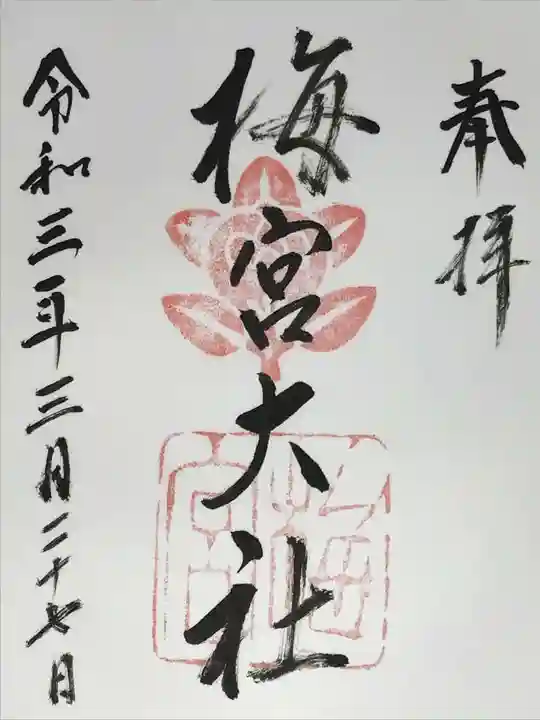 奉拝
梅宮大社
令和三年三月二十七日
梅宮